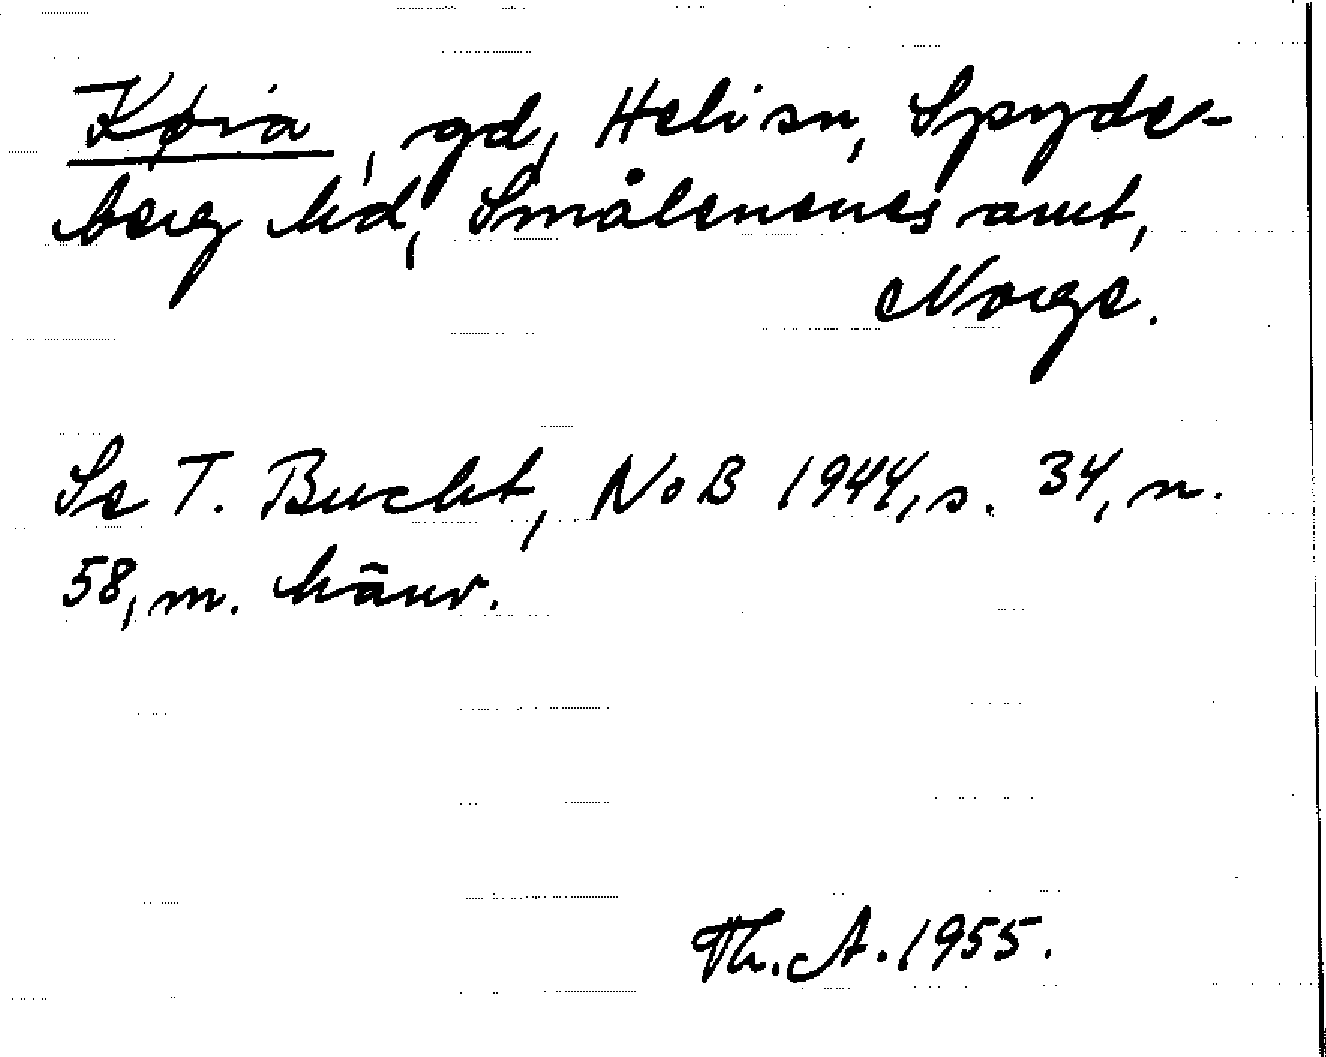 Køia, gd, Helien, Spyde-
berg hd, Smålenenes amt,
Norge.
Se T. Bucht, NoB 1944, s. 34, n.
58, m. hänv.
Th. A. 1955.